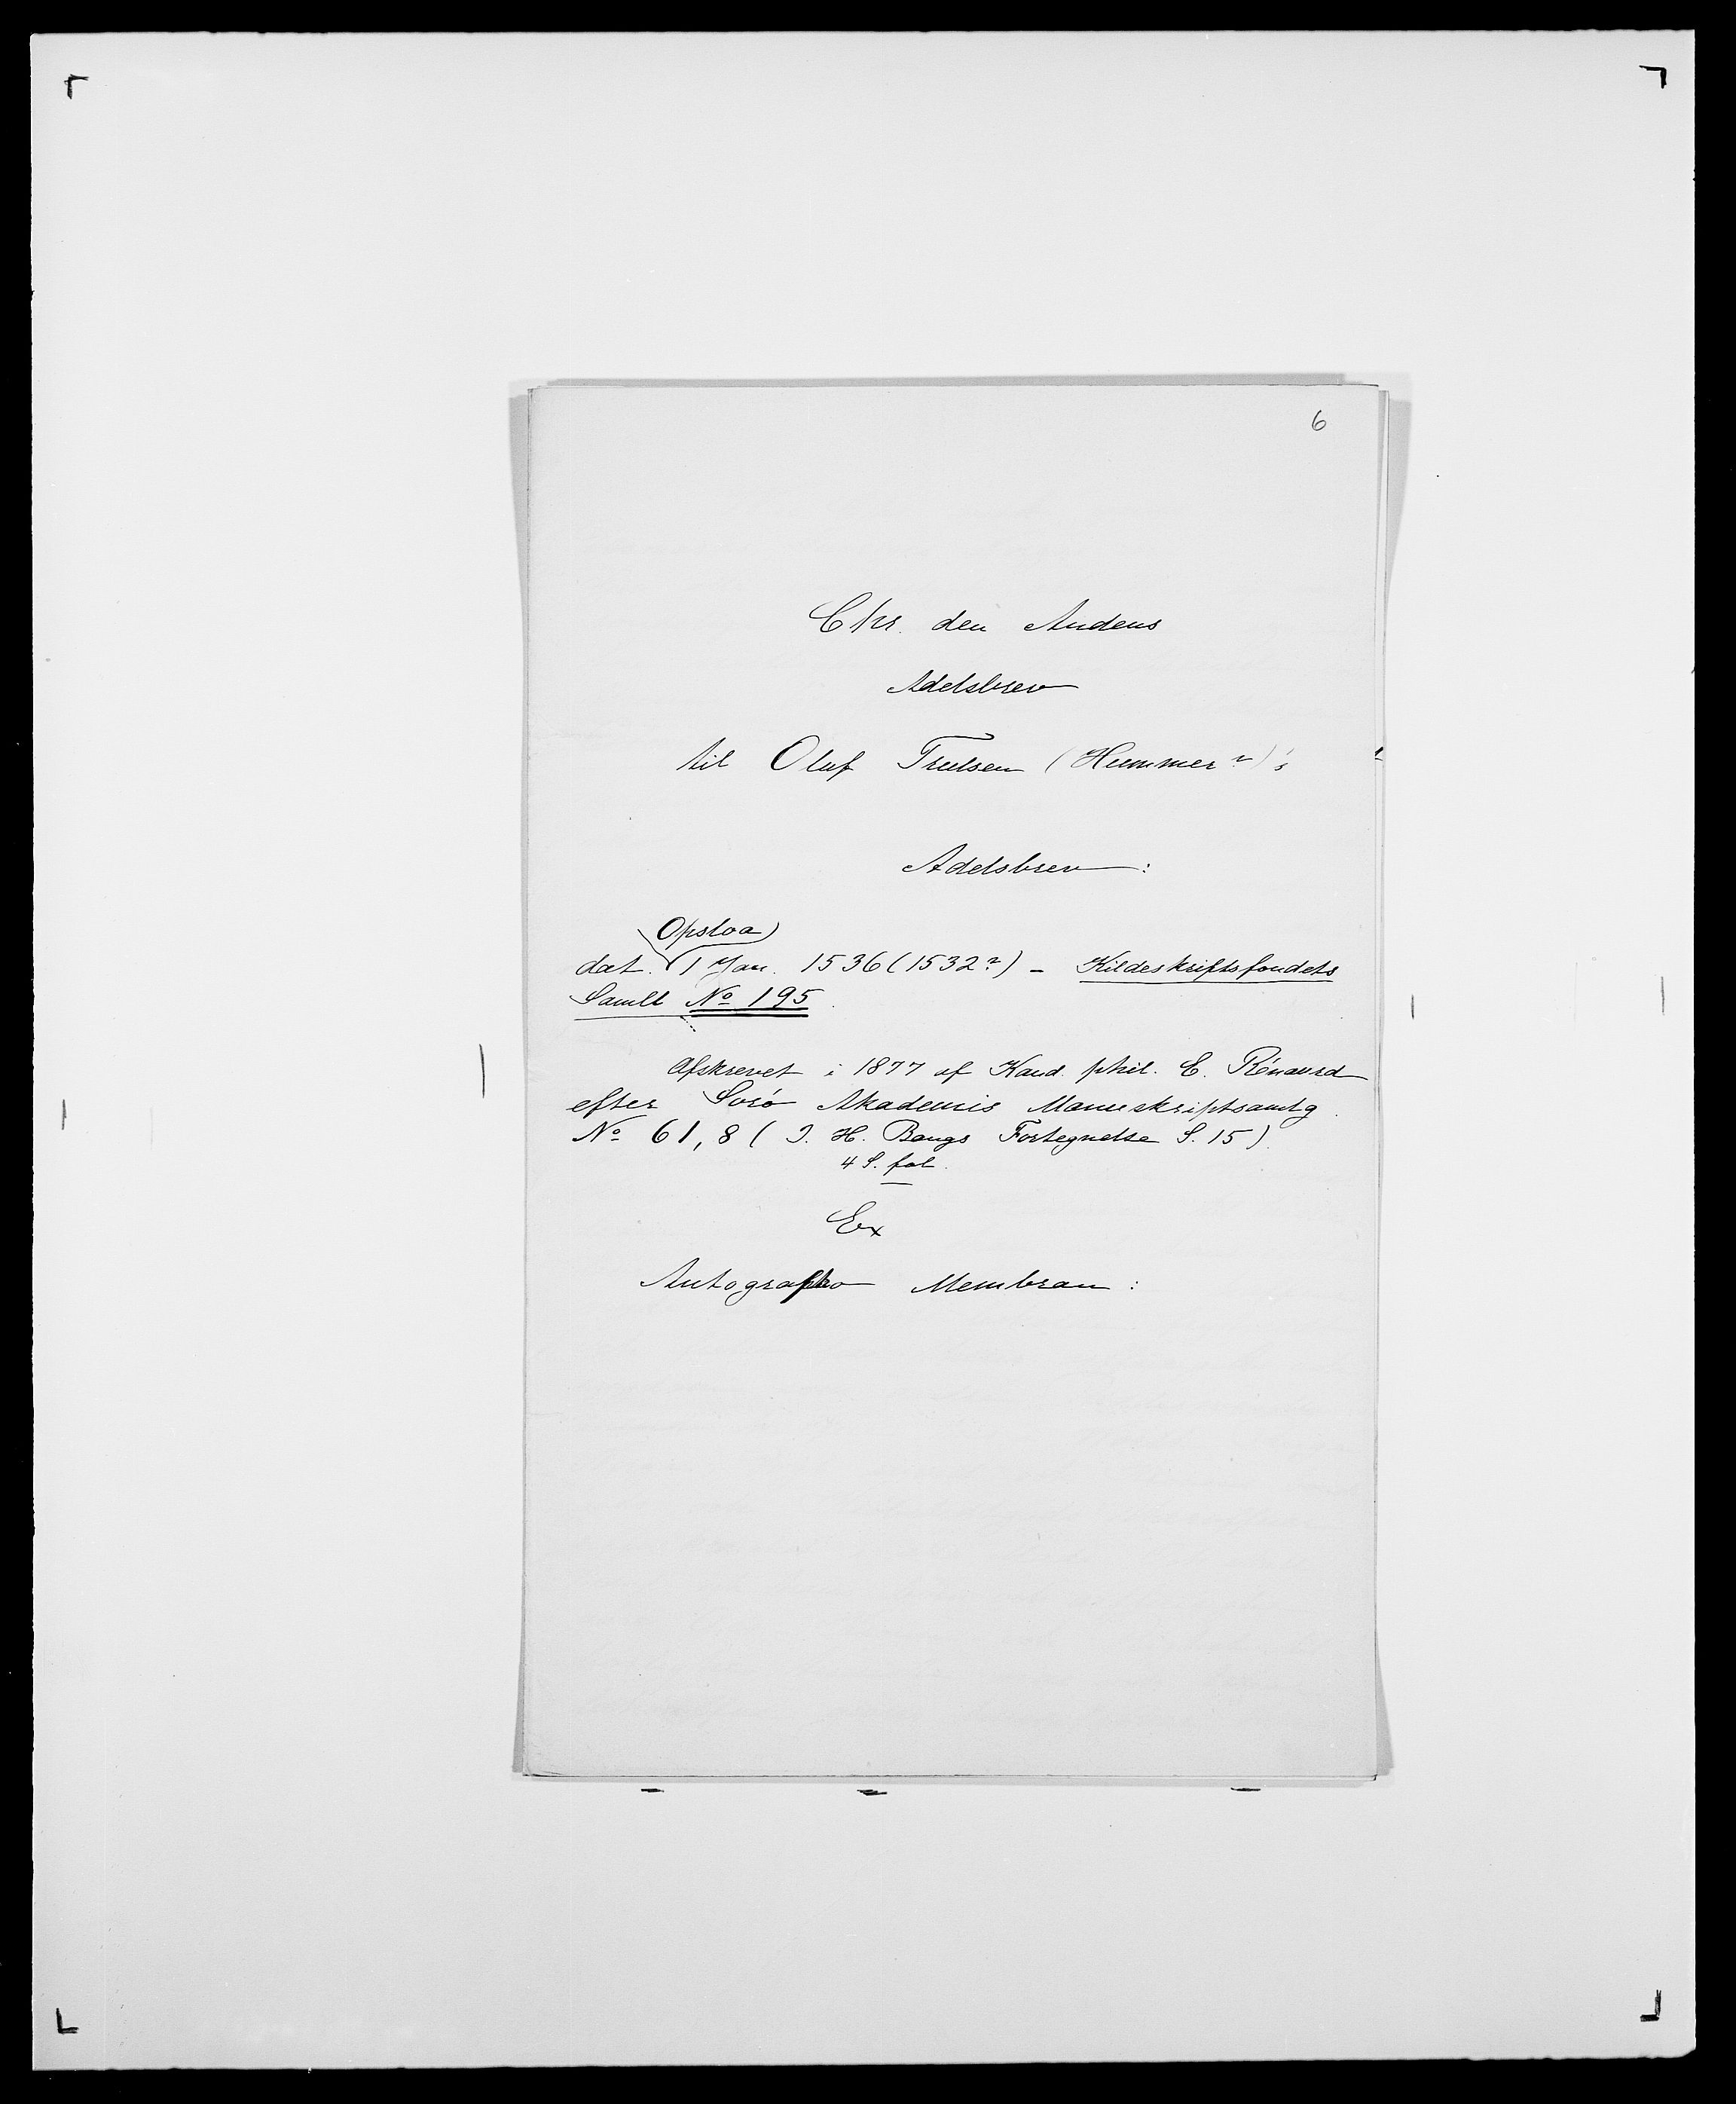 6
Chr. den Andens
Adelsbrev
til Oluf Trulsen (Hummer?)'s
Adelsbrev:
Opsloa
dat. 1 Jan. 1536 (1532?) - Kildeskriftsfondets
Samll No 195.
Afskrevet i 1877 af Kand. phil. E. Rénaurd
efter Sorö Akademis Manuskriptsamlg.
No 61,8 (J. H. Bangs Fortegnelse S. 15).
4 S. fol.
Ex
Autographo Membran: